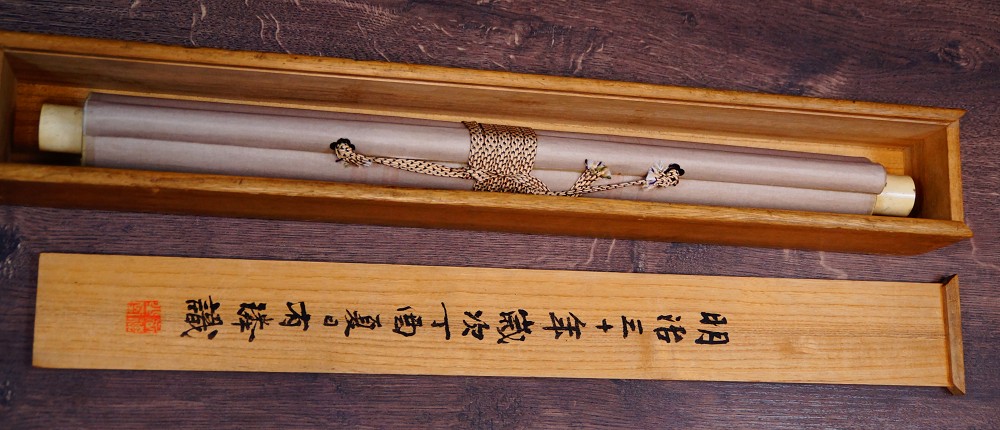 明治三十年歳次丁酉夏日有識